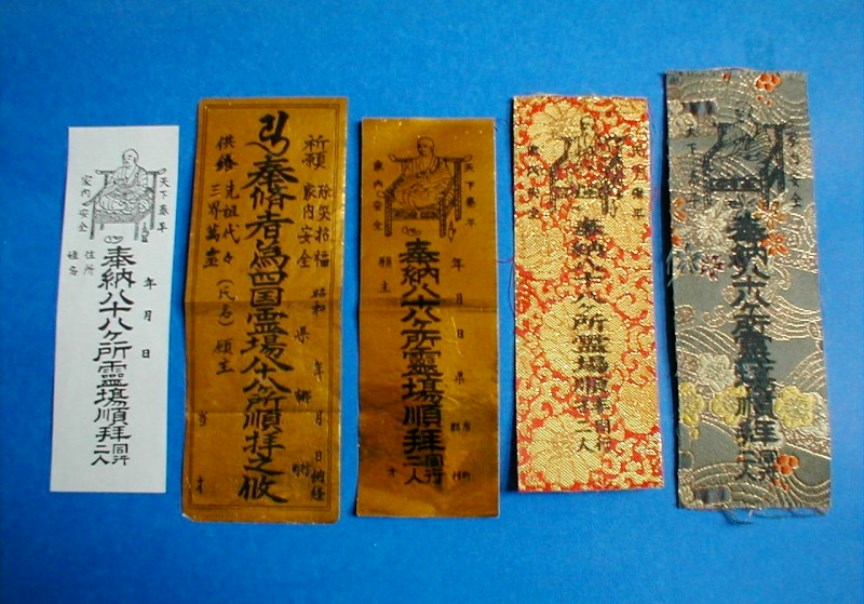 天下泰平
家内安全
年 月 日
奉納八十八ヶ所靈塲順拝 同行二人
住所
姓名
祈願 除災招福
家内安全
昭和 年 月 日 納経
県 郷 村
奉脩者為四国霊場八十八ヶ所順拝之攸
供養 先祖代々
三界萬霊
(氏名) 願主
当 才
天下泰平
家内安全
年 月 日 県
奉納八十八ヶ所靈塲順拝 同行二人
願主 才
奉納八十八ヶ所靈塲順拝 同行二人
家内安全
天下泰平
奉納八十八ヶ所靈塲順拝 同行二人